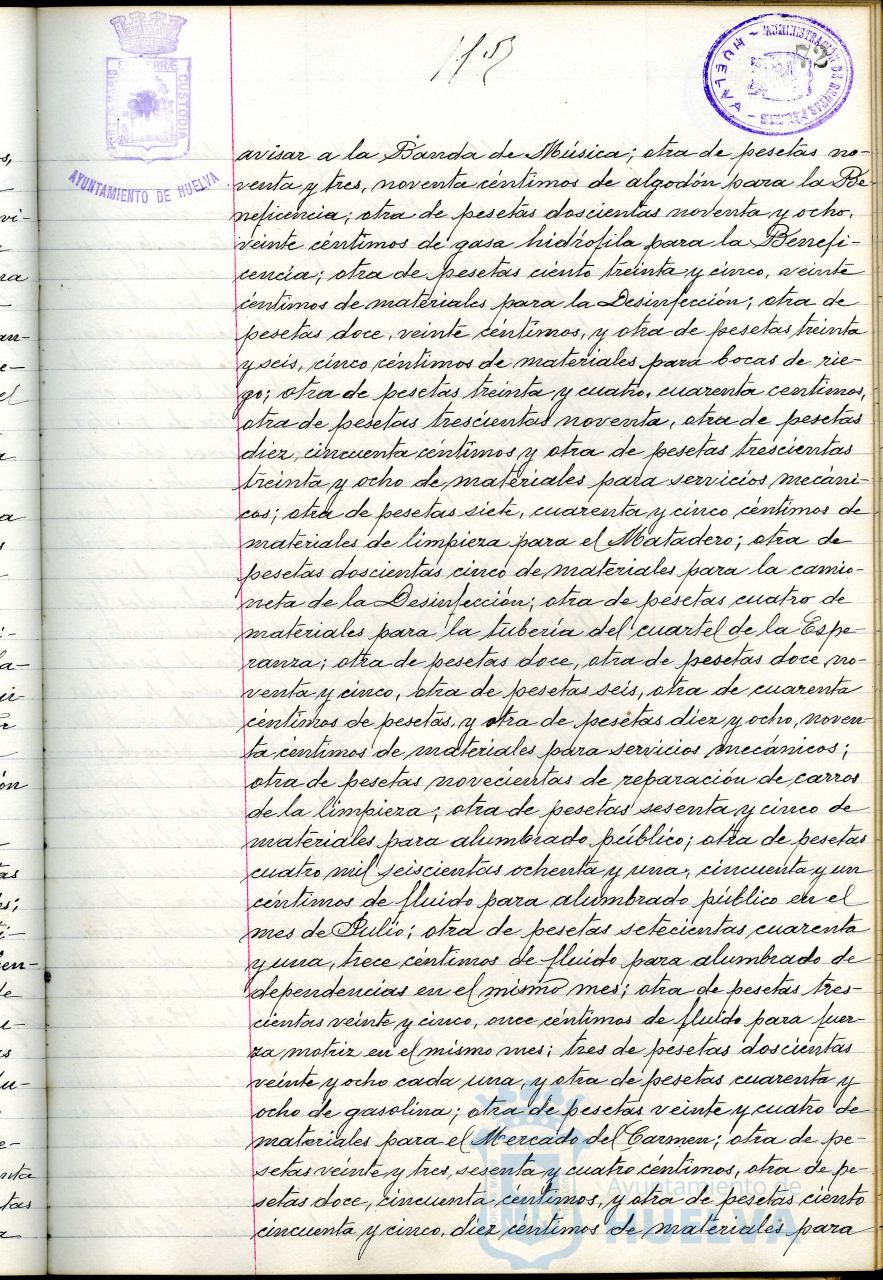 115
72
AYUNTAMIENTO DE HUELVA
CUSTODIA
HUELVA
ADMINISTRACIÓN DE RENTAS PÚBLICAS
avisar a la Banda de Música; otra de pesetas no-
venta y tres, noventa céntimos de algodón para la Be-
neficencia; otra de pesetas doscientas noventa y ocho,
veinte céntimos de gasa hidrófila para la Benefi-
cencia; otra de pesetas ciento treinta y cinco, veinte
céntimos de materiales para la Desinfección; otra de
pesetas doce, veinte céntimos, y otra de pesetas treinta
y seis, cinco céntimos de materiales para bocas de rie-
go; otra de pesetas treinta y cuatro, cuarenta centimos,
otra de pesetas trescientas noventa, otra de pesetas
diez, cincuenta céntimos y otra de pesetas trescientas
treinta y ocho de materiales para servicios mecáni-
cos; otra de pesetas siete, cuarenta y cinco céntimos de
materiales de limpieza para el Matadero; otra de
pesetas doscientas cinco de materiales para la camio-
neta de la Desinfección; otra de pesetas cuatro de
materiales para la tubería del cuartel de la Espe-
ranza; otra de pesetas doce, otra de pesetas doce, no-
venta y cinco, otra de pesetas seis, otra de cuarenta
céntimos de pesetas, y otra de pesetas diez y ocho, noven-
ta céntimos de materiales para servicios mecánicos;
otra de pesetas novecientas de reparación de carros
de la limpieza; otra de pesetas sesenta y cinco de
materiales para alumbrado público; otra de pesetas
cuatro mil seiscientas ochenta y una, cincuenta y un
céntimos de fluido para alumbrado público en el
mes de Julio; otra de pesetas setecientas cuarenta
y una, trece céntimos de fluido para alumbrado de
dependencias en el mismo mes; otra de pesetas tres-
cientas veinte y cinco, once céntimos de fluido para fuer-
za motriz en el mismo mes; tres de pesetas doscientas
veinte y ocho cada una, y otra de pesetas cuarenta y
ocho de gasolina; otra de pesetas veinte y cuatro de
materiales para el Mercado del Carmen; otra de pe-
setas veinte y tres, sesenta y cuatro céntimos, otra de pe-
setas doce, cincuenta céntimos, y otra de pesetas ciento
cincuenta y cinco, diez céntimos de materiales para
Ayuntamiento de
HUELVA